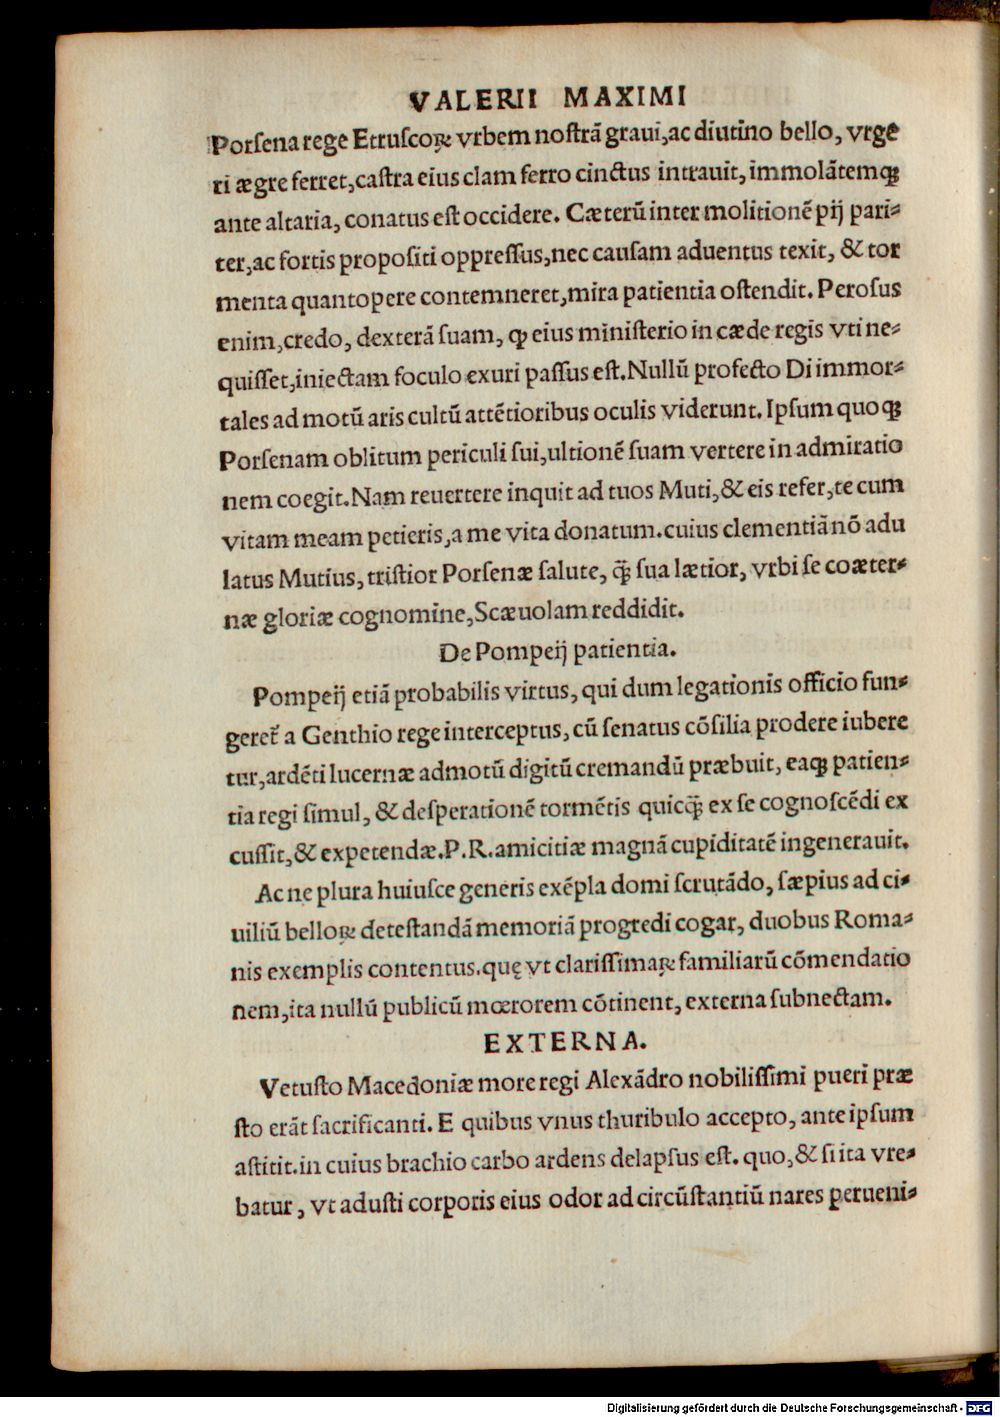 VALERII MAXIMI
Porsena rege Etruscoꝝ vrbem nostrã graui, ac diutino bello, vrge
ri ægre ferret, castra eius clam ferro cinctus intrauit, immolãtemqꝫ
ante altaria, conatus est occidere. Cæterũ inter molitionẽ pij pari-
ter, ac fortis propositi oppressus, nec causam aduentus texit, & tor
menta quantopere contemneret, mira patientia ostendit. Perosus
enim, credo, dexterã suam, ꝙ eius ministerio in cæde regis vti ne-
quisset, iniectam foculo exuri passus est. Nullũ profecto Di immor-
tales admotũ aris cultũ attẽtioribus oculis viderunt. Ipsum quoqꝫ
Porsenam oblitum periculi sui, ultionẽ suam vertere in admiratio
nem coegit. Nam reuertere inquit ad tuos Muti, & eis refer, te cum
vitam meam petieris, a me vita donatum. cuius clementiã nõ adu
latus Mutius, tristior Porsenæ salute, q̃ sua lætior, vrbi se coæter-
næ gloriæ cognomine, Scæuolam reddidit.
De Pompeij patientia.
Pompeij etiã probabilis virtus, qui dum legationis officio fun-
geret̃ a Genthio rege interceptus, cũ senatus cõsilia prodere iubere
tur, ardẽti lucernæ admotũ digitũ cremandũ præbuit, eaqꝫ patien-
tia regi simul, & desperationẽ tormẽtis quicq̃ ex se cognoscẽdi ex
cussit, & expetendæ .P.R. amicitiæ magnã cupiditatẽ ingenerauit.
Ac ne plura huiusce generis exẽpla domi scrutãdo, sæpius ad ci-
uiliũ belloꝝ detestandã memoriã progredi cogar, duobus Roma-
nis exemplis contentus. quę vt clarissimaꝝ familiarũ cõmendatio
nem, ita nullũ publicũ mœrorem cõtinent, externa subnectam.
EXTERNA.
Vetusto Macedoniæ more regi Alexãdro nobilissimi pueri præ
sto erãt sacrificanti. E quibus vnus thuribulo accepto, ante ipsum
astitit. in cuius brachio carbo ardens delapsus est. quo, & si ita vre-
batur, vt adusti corporis eius odor ad circũstantiũ nares perueni-
Digitalisierung gefördert durch die Deutsche Forschungsgemeinschaft - DFG